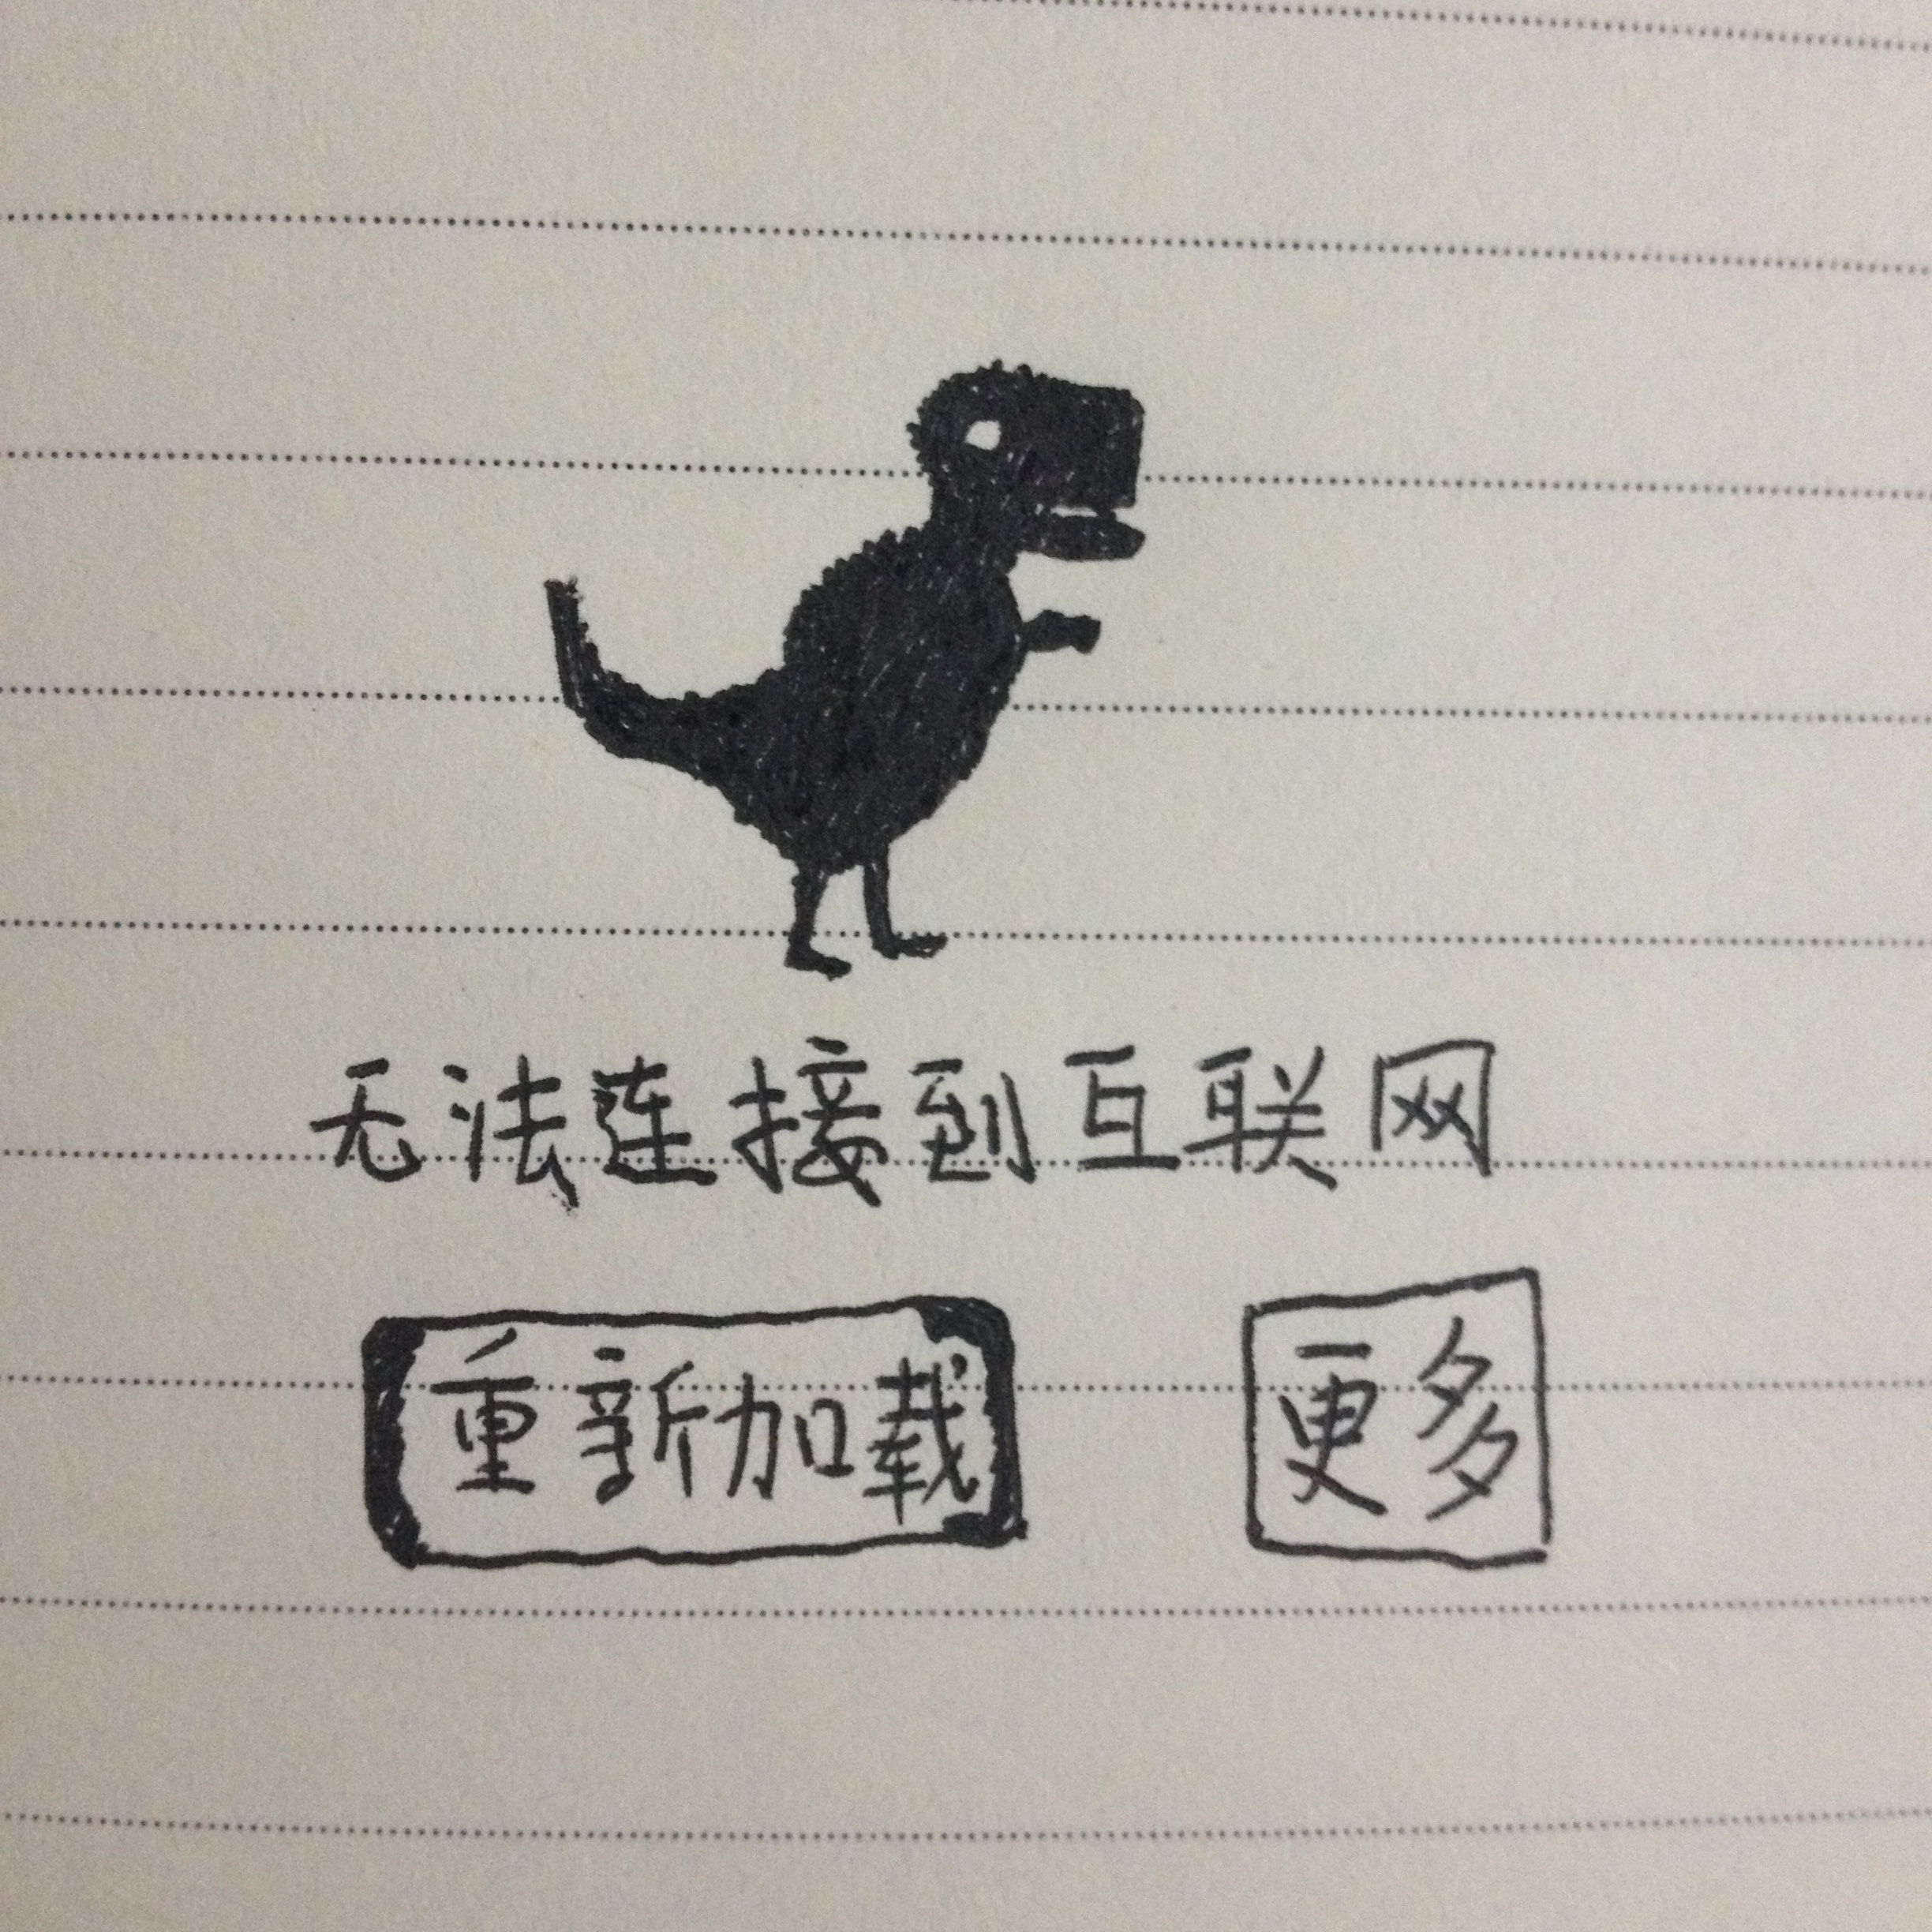 无法连接到互联网
重新加载 更多